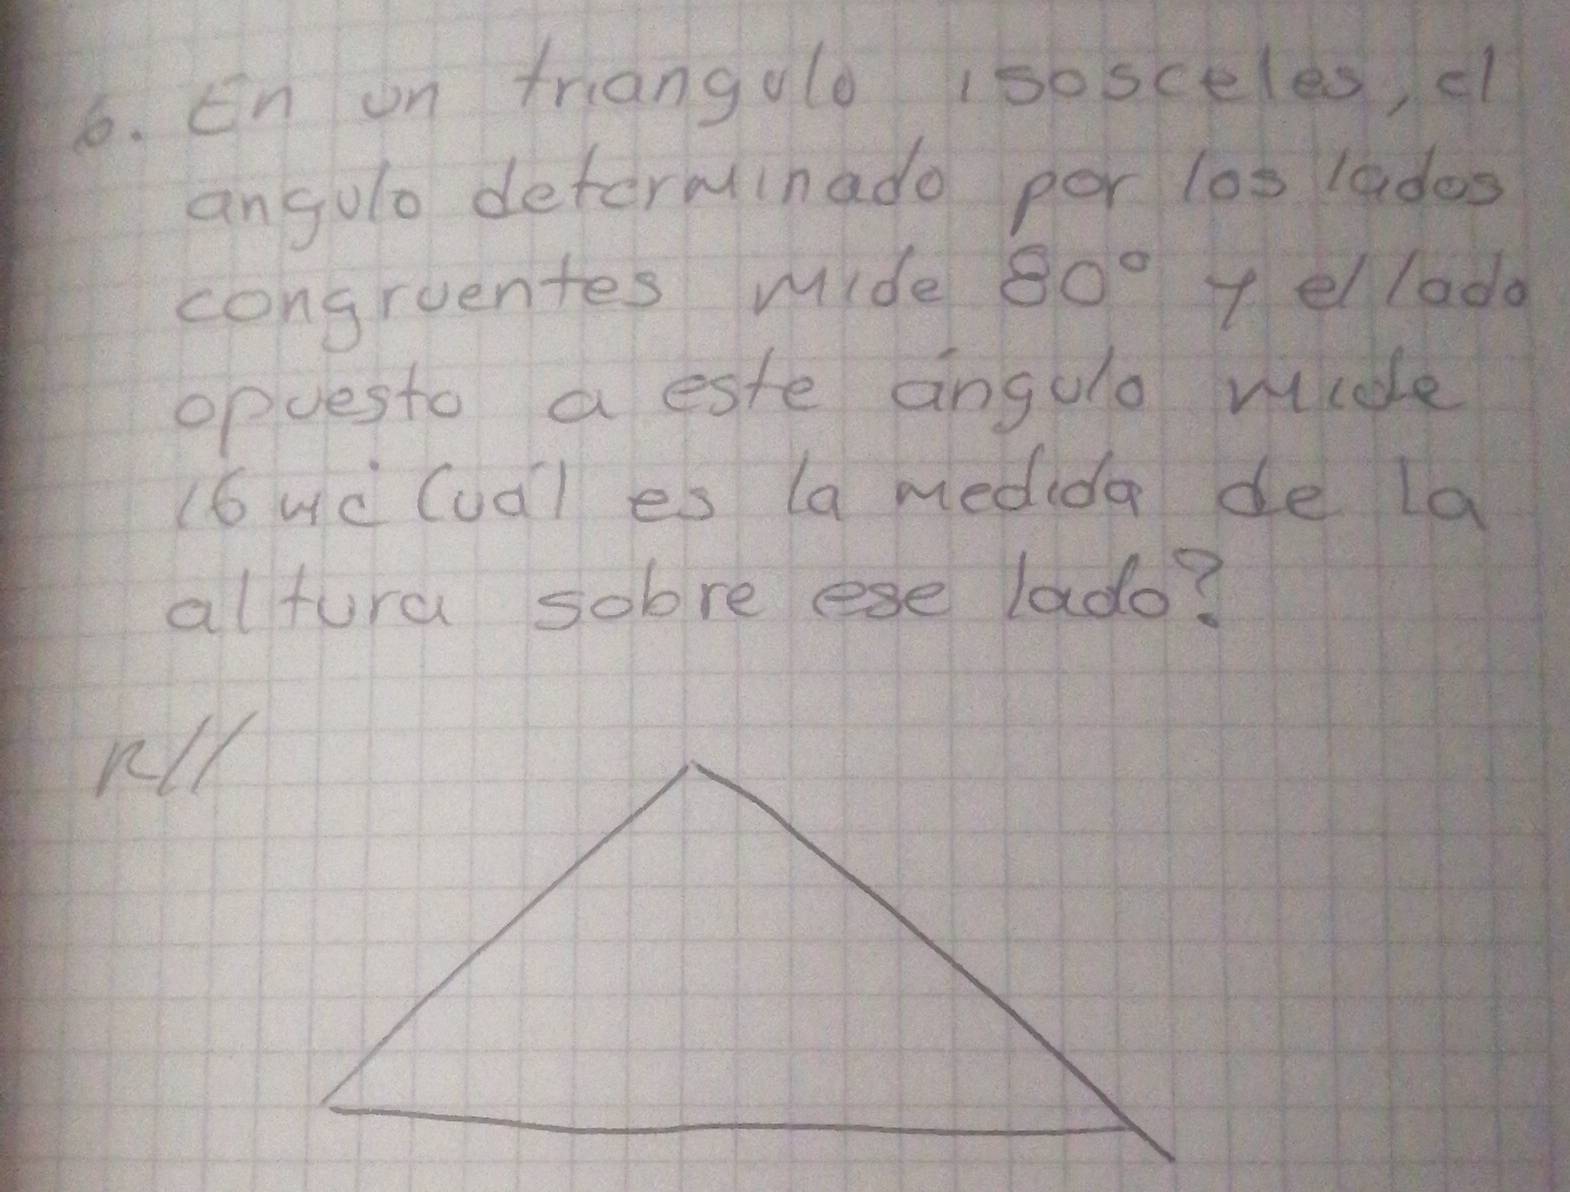 6. En un triangulo isosceles, el
angulo determinado por los lados
congruentes mide 80° y el lado
opuesto a este ángulo mide
16 u ¿Cuál es la medida de la
altura sobre ese lado?
R//